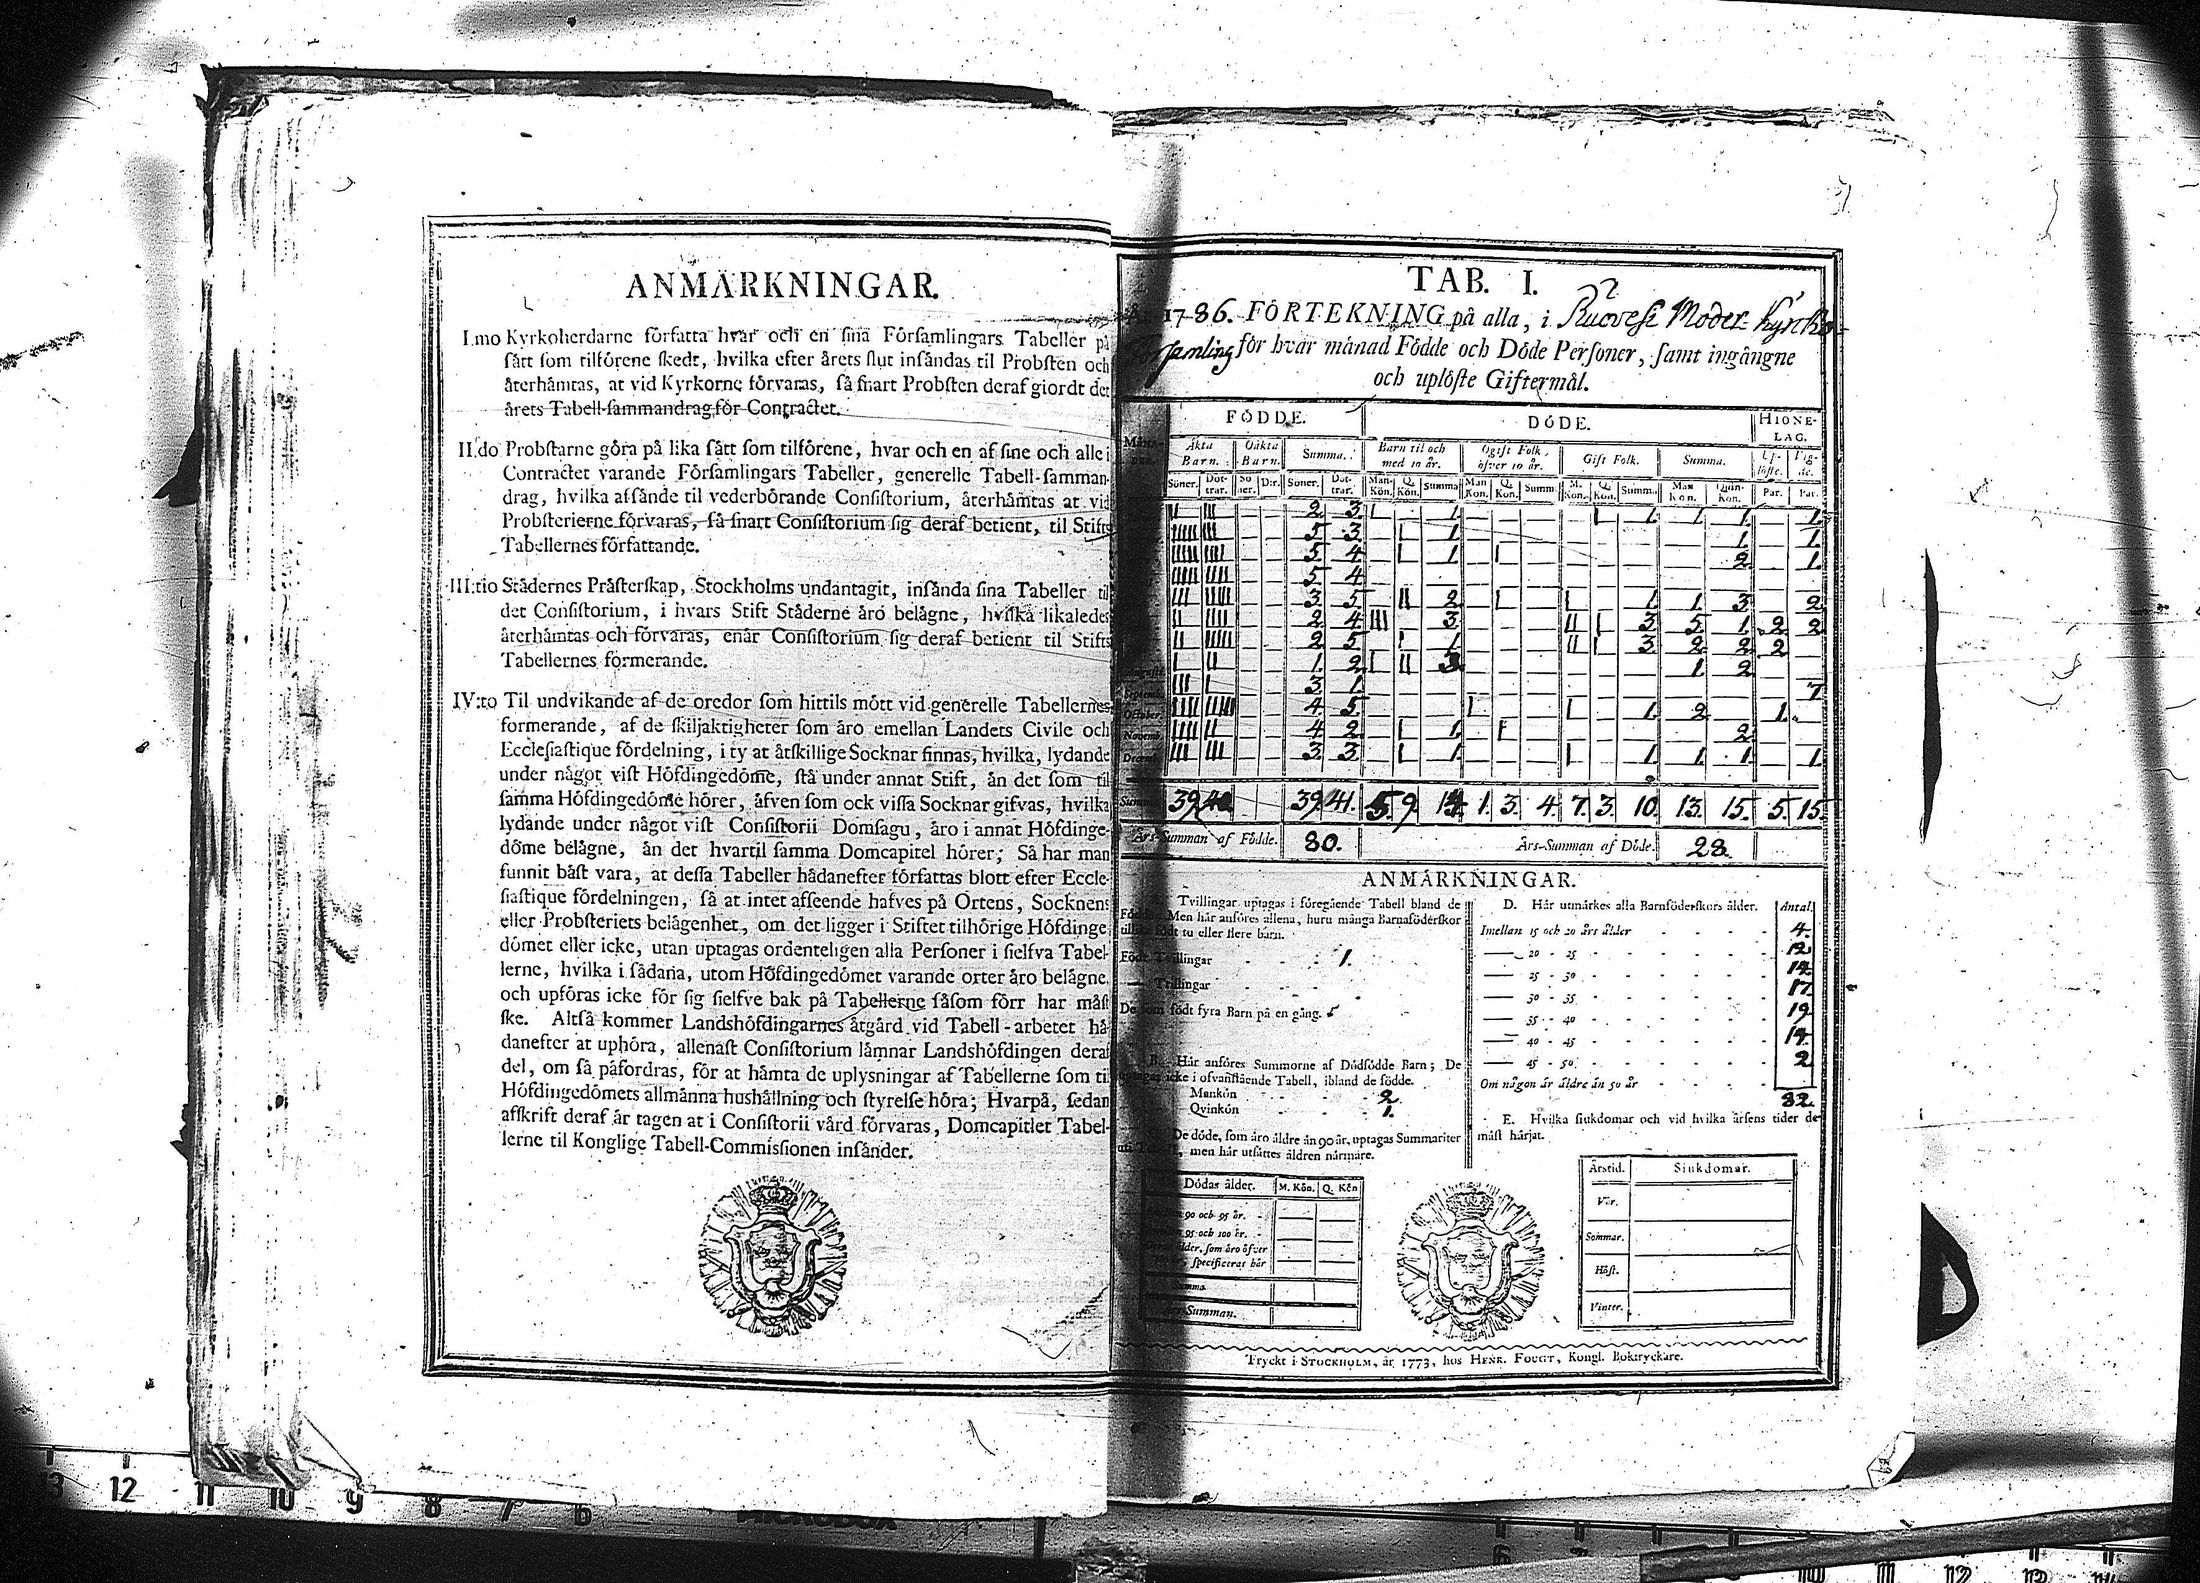 ANMÄRKNINGAR.
I.mo Kyrkoherdarne författa hvar och en sina Församlingars Tabeller på
sätt som tilförene skedt, hvilka efter årets slut insändas til Probsten och
återhämtas, at vid Kyrkorne förvaras, så snart Probsten deraf giordt det
årets Tabell-sammandrag för Contractet.
II.do Probstarne göra på lika sätt som tilförene, hvar och en af sine och alle i
Contractet varande Församlingars Tabeller, generelle Tabell-samman-
drag, hvilka afsände til vederbörande Consistorium, återhämtas at vid
Probsterierne förvaras, så snart Consistorium sig deraf betient, til Stifts
Tabellernes författande.
III.tio Städernes Prästerskap, Stockholms undantagit, insända sina Tabeller til
det Consistorium, i hvars Stift Städerne äro belägne, hvilka likaledes
återhämtas och förvaras, enär Consistorium sig deraf betient til Stifts
Tabellernes formerande.
IV:to Til undvikande af de oredor som hittils mött vid generelle Tabellernes
formerande, af de skiljaktigheter som äro emellan Landets Civile och
Ecclesiastique fördelning, i ty at åtskillige Socknar finnas, hvilka, lydande
under något vist Höfdingedöme, stå under annat Stift, än det som til
samma Höfdingedöme hörer, äfven som ock vissa Socknar gifvas, hvilka
lydande under något vist Consistorii Domsagu, äro i annat Höfdinge-
döme belägne, än det hvartil samma Domcapitel hörer; Så har man
funnit bäst vara, at dessa Tabeller hädanefter författas blott efter Eccle-
siastique fördelningen, så at intet afseende hafves på Ortens, Socknens
eller Probsteriets belägenhet, om det ligger i Stiftet tilhörige Höfdinge-
dömet eller icke, utan uptagas ordenteligen alla Personer i sielfva Tabel-
lerne, hvilka i sådana, utom Höfdingedömet varande orter äro belägne,
och upföras icke för sig sielfve bak på Tabellerne såsom förr har måst
ske. Altså kommer Landshöfdingarnes åtgärd vid Tabell-arbetet hä-
danefter at uphöra, allenast Consistorium lämnar Landshöfdingen deraf
del, om så påfordras, för at hämta de uplysningar af Tabellerne som til
Höfdingedömets allmänna hushållning och styrelse höra; Hvarpå, sedan
afskrift deraf är tagen at i Consistorii vård förvaras, Domcapitlet Tabel-
lerne til Konglige Tabell-Commissionen insänder.
TAB. I.
1786. FÖRTEKNING på alla, i Ruovesi Moder Kyrko-
samling för hvar månad Födde och Döde Personer, samt ingångne
och uplöste Giftermål.
FÖDDE. DÖDE. HIONE-LAG.
Äkta Barn. Oäkta Barn. Summa. Barn til och med 10 år. Ogift Folk, öfver 10 år. Gift Folk. Summa. Up-löste. Vig-de.
Söner. Döt-trar. Sö-ner. D:r. Söner. Döt-trar. Man-Kön. Q. Kön. Summa Man Kön. Q. Kön. Summ. M. Kön. Q. Kön. Summ. Man Kön. Quin-kön. Par. Par.
II III 2. 3. I 1. I 1. 1. 1. 1.
IIIII III 5. 3. I 1. 1. 1.
IIIII IIII 5. 4. I 1. I 2. 1.
IIIII IIII 5. 4.
III IIIII 3. 5. II 2. I I 1. 1. 3. 2.
II IIII 2. 4. III 3. II I 3. 5. 1. 2. 2.
II IIIII 2. 5. I 1. II I 3. 2. 2. 2.
Augusti. I II 1. 2. I II 3. 1. 2.
Septemb. III I 3. 1. 7.
October. IIII IIIII 4. 5. I I 1. 2. 1.
Novemb. IIII II 4. 2. I 1. I 2.
Decemb. III III 3. 3. I 1. I 1. 1. 1. 1.
Summa 39. 39. 41. 5. 9. 14. 1. 3. 4. 7. 3. 10. 13. 15. 5. 15.
Års-Summan af Födde. 80. Års-Summan af Döde. 28.
ANMÄRKNINGAR.
Tvillingar uptagas i föregående Tabell bland de
Födde. Men här anföres allena, huru många Barnaföderskor
födt tu eller flere barn.
Födt Tvillingar 1.
Trillingar
De som födt fyra Barn på en gång.
B. Här anföres Summorne af Dödfödde Barn; De
uptagas icke i ofvanstående Tabell, ibland de födde.
Mankön 2.
Qvinkön 1.
De döde, som äro äldre än 90 år, uptagas Summariter
men här utsättes åldren närmare.
Dödas ålder. M. Kön. Q. Kön
90 och 95 år.
95 och 100 år.
ålder, som äro öfver
specificeras här
Summa.
Summan.
D. Här utmärkes alla Barnföderskors ålder. Antal.
Imellan 15 och 20 års ålder 4.
20 - 25 12.
25 - 30 14.
30 - 35 17.
35 - 40 19.
40 - 45 14.
45 - 50 2.
Om någon är äldre än 50 år
82.
E. Hvilka siukdomar och vid hvilka årsens tider de
mäst härjat.
Årstid. Siukdomar.
Vår.
Sommar.
Höst.
Vinter.
Tryckt i STOCKHOLM, år 1773, hos HENR. FOUGT, Kongl. Boktryckare.
13 12 11 10 9 8 7 6
6 10 11 12 13 14